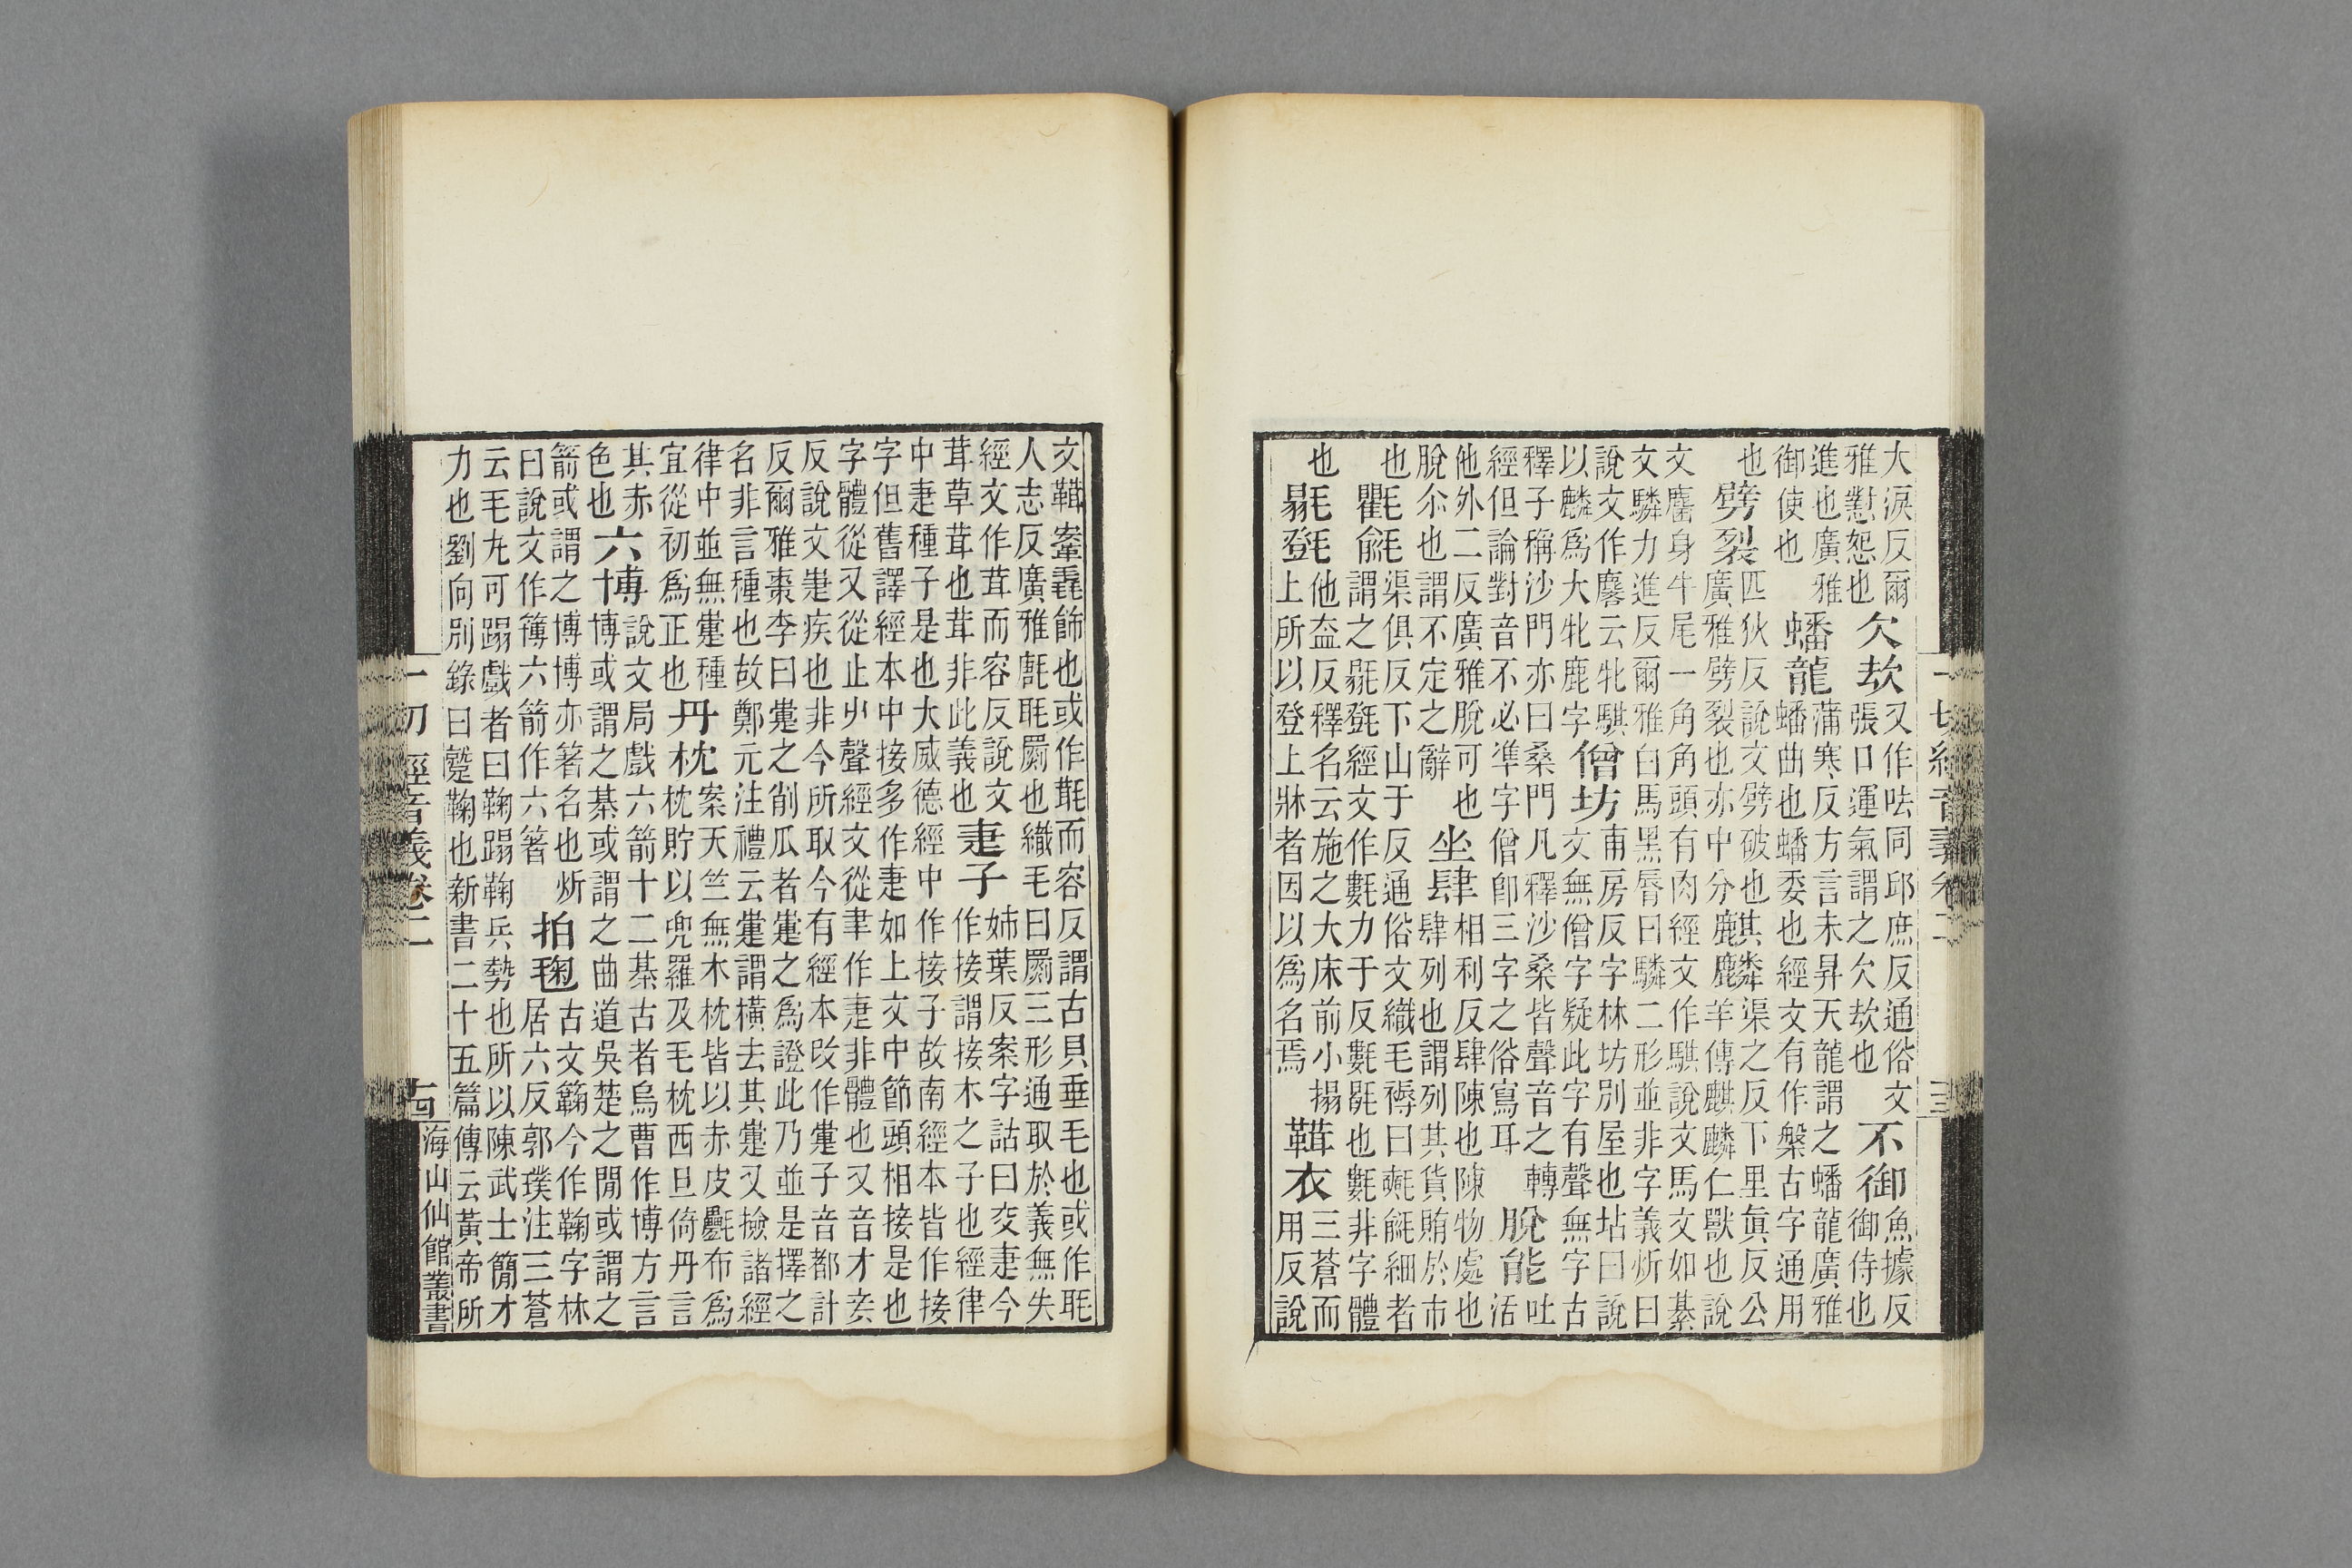 大淚反爾雅懟怨也欠欬又作呿同邱庶反通俗文張口運氣謂之欠欬也不御魚據反御侍也
進也廣雅御使也蟠龍蒲寒反方言未昇天龍謂之蟠龍廣雅蟠曲也蟠委也經文有作槃古字通用
也劈裂匹狄反說文劈破也廣雅劈裂也亦中分麒麟渠之反下里眞反公羊傳麒麟仁獸也說
文麕身牛尾一角角頭有肉經文作騏說文馬文如綦
文驎力進反爾雅白馬黑脣曰驎二形並非字義炘曰
說文作麐云牝騏以麟爲大牝鹿字僧坊甫房反字林坊別屋也坫曰說文無僧字疑此字有聲無字古
釋子稱沙門亦曰桑門凡釋沙桑皆聲音之轉經但論對音不必準字僧卽三字之俗寫耳脫能吐活
他外二反廣雅脫可也脫尒也謂不定之辭坐肆相利反肆陳也陳物處也肆列也謂列其貨賄於市
也氍毹渠俱反下山于反通俗文織毛褥曰氍毹細者謂之毾㲪經文作氀力于反氀毼也氀非字體
也毾㲪他盍反釋名云施之大床前小榻上所以登上牀者因以爲名焉䩸衣三蒼而用反說
一切經音義卷二
十三
文䩸鞌毳飾也或作㲨而容反謂古貝垂毛也或作毦
人志反廣雅毦罽也織毛曰罽三形通取於義無失
經文作茸而容反說文茸草茸也茸非此義也疌子姊葉反案字詁曰交疌今作接謂接木之子也經律
中疌種子是也大威德經中作接子故南經本皆作接
字但舊譯經本中接多作疌如上文中節頭相接是也
字體從又從止屮聲經文從聿作疌非體也又音才妾
反說文疌疾也非今所取今有經本改作疐子音都計
反爾雅棗李曰疐之削瓜者疐之爲證此乃並是擇之
名非言種也故鄭元注禮云疐謂橫去其疐又撿諸經
律中並無疐種宜從初爲正也丹枕案天竺無木枕皆以赤皮㲲布爲枕貯以兜羅及毛枕西旦倚丹言
其赤色也六博說文局戲六箭十二棊古者烏曹作博方言博或謂之棊或謂之曲道吳楚之閒或謂之
箭或謂之博博亦著名也炘曰說文作簙六箭作六箸拍毱古文鞠今作鞠字林居六反郭璞注三蒼
云毛丸可蹋戲者曰鞠蹋鞠兵勢也所以陳武士簡才
力也劉向別錄曰蹵鞠也新書二十五篇傳云黃帝所
一切經音義卷二
十四
海山仙館叢書